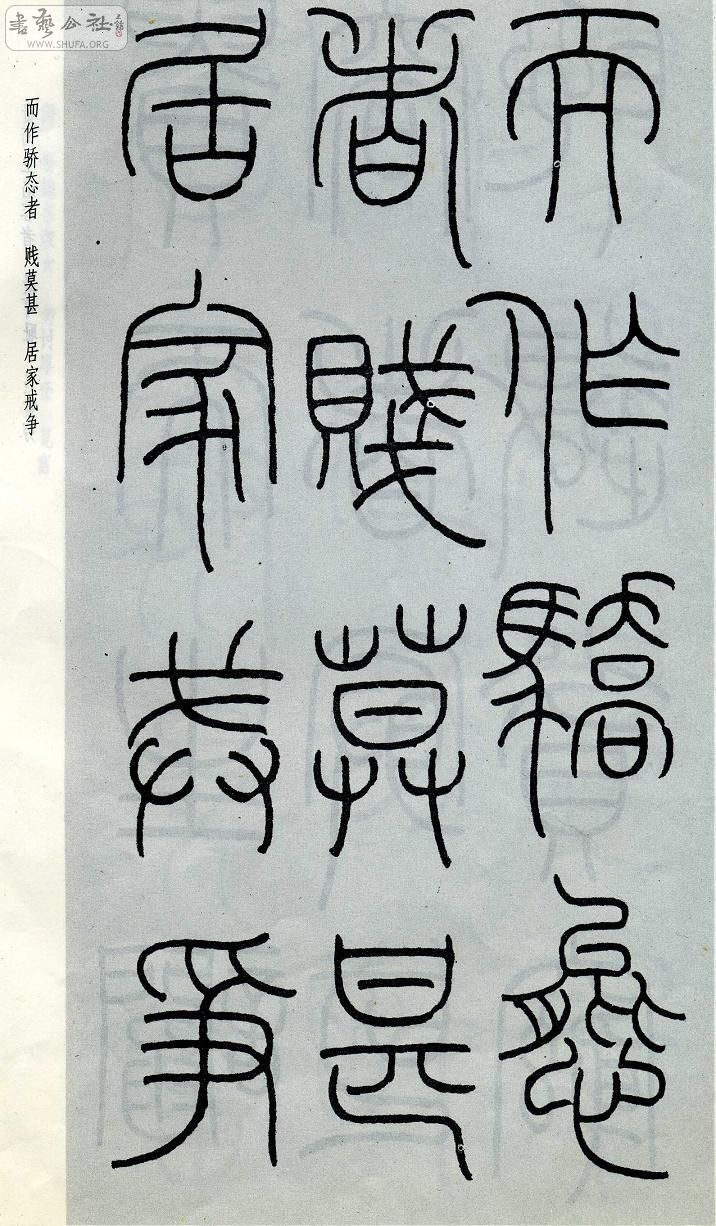 而作驕態
者賤莫甚
居家戒爭
而作骄态者 贱莫甚 居家戒争
書藝公社
WWW.SHUFA.ORG